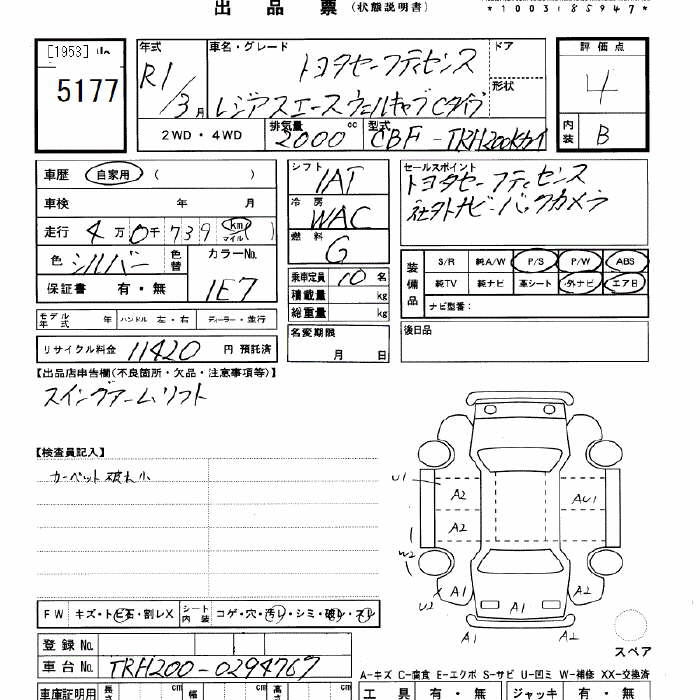 出 品 票 （状態説明書）
*1003185947*
[1953] ﾊﾞﾊ
5177
年式 R1/3 月
車名・グレード トヨタセーフティセンス
レジアスエース ウェルキャブCタイプ
ドア
形状
評価点 4
内装 B
2WD・4WD 排気量 2000 cc 型式 CBF-TRH200Kカイ
車歴 自家用 （ ）
車検 年 月
走行 4万0千739 km マイル ( )
色 シルバー 色替 カラーNo. 1E7
保証書 有・無
シフト IAT
冷房 WAC
燃料 G
乗車定員 10 名
積載量 kg
総重量 kg
名変期限 月 日
セールスポイント
トヨタセーフティセンス
社外ナビ・バックカメラ
装備品 S/R 純A/W P/S P/W ABS
純TV 純ナビ 革シート 外ナビ エアB
ナビ型番：
後日品
モデル年式 年 ハンドル 左・右 ディーラー・並行
リサイクル料金 11420 円 預託済
【出品店申告欄（不良箇所・欠品・注意事項等）】
スイングアームリフト
【検査員記入】
カーペット破れ小
U1
A2
AU1
A2
W2
U2
A1
A1
A1
A1
A1
スペア
FW キズ・トビ石・割レX シート内装 コゲ・穴・汚レ・シミ・破レ・スレ
登録 No.
車台 No. TRH200-0294767
A-キズ C-腐食 E-エクボ S-サビ U-凹ミ W-補修 XX-交換済
車庫証明用 長さ cm 幅 cm 高さ cm
工 具 有・無 ジャッキ 有・無